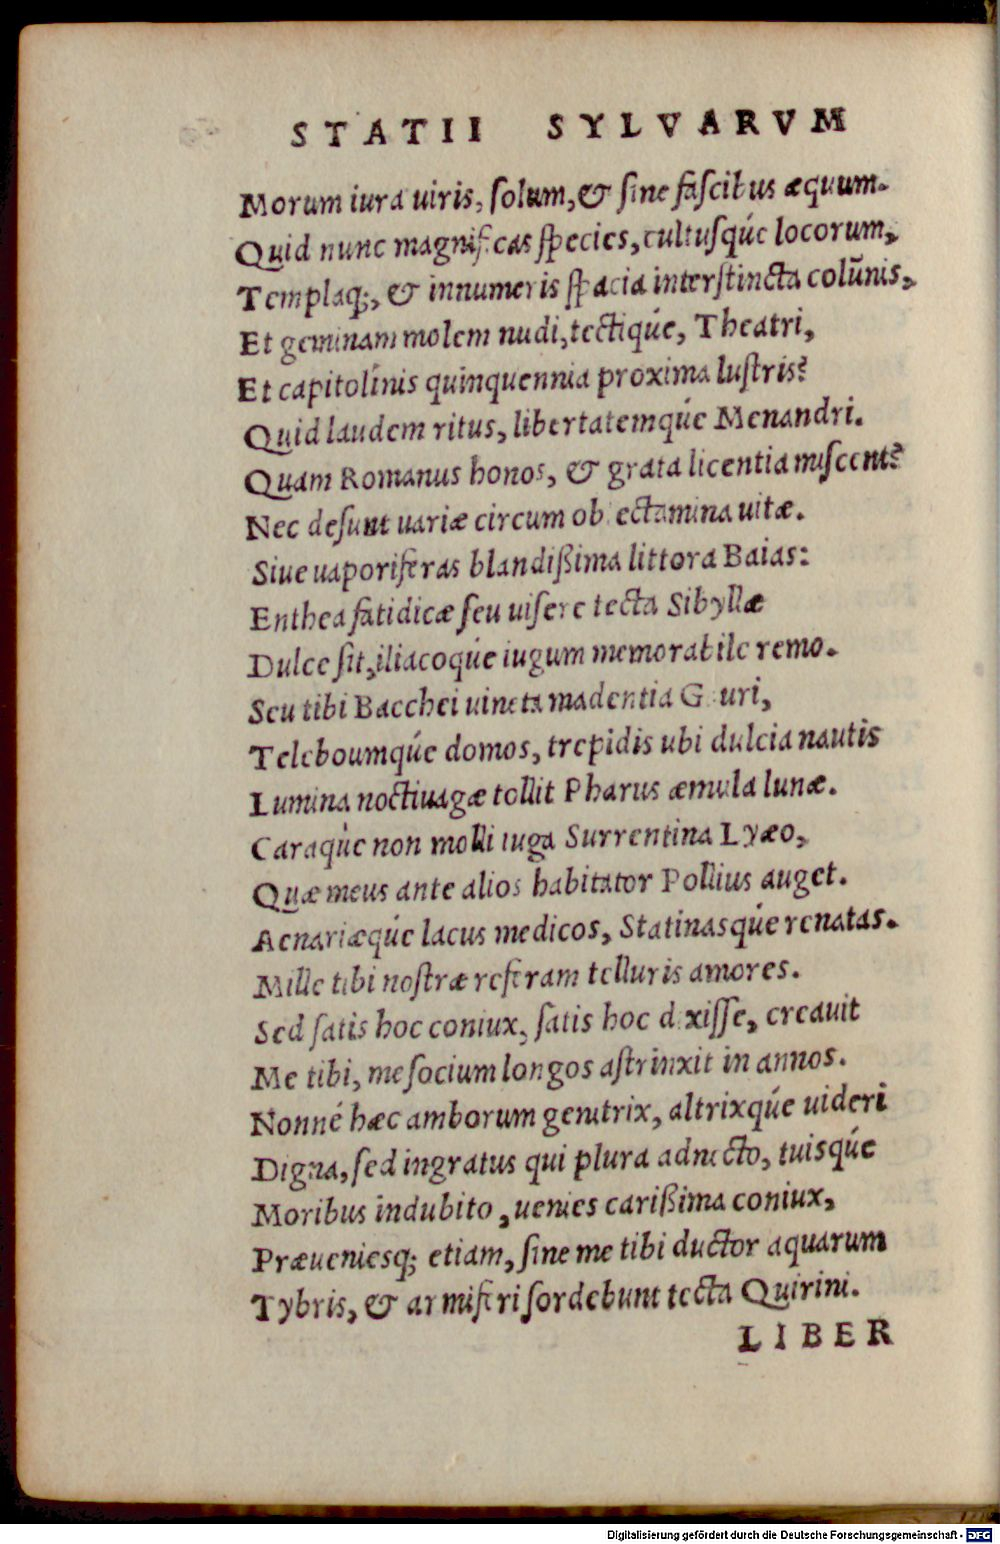 STATII SYLVARVM
Morum iura uiris, solum, & sine fascibus æquum.
Quid nunc magnificas species, cultusqúe locorum,
Templaq;, & innumeris spacia interstincta colūnis,
Et geminam molem nudi, tectiqúe, Theatri,
Et capitolinis quinquennia proxima lustris?
Quid laudem ritus, libertatemqúe Menandri.
Quam Romanus honos, & grata licentia miscent?
Nec desunt uariæ circum ob ectamina uitæ.
Siue uaporiferas blandißima littora Baias:
Enthea fatidicæ seu uisere tecta Sibyllæ
Dulce sit, iliacoqúe iugum memorabile remo.
Seu tibi Bacchei uineta madentia G uri,
Teleboumqúe domos, trepidis ubi dulcia nautis
Lumina noctiuagæ tollit Pharus æmula lunæ.
Caraqùe non molli iuga Surrentina Lyæo,
Quæ meus ante alios habitator Pollius auget.
Aenariæqúe lacus medicos, Statinasqúe renatas.
Mille tibi nostræ referam telluris amores.
Sed satis hoc coniux, satis hoc dixisse, creauit
Me tibi, me socium longos astrinxit in annos.
Nonné hæc amborum genitrix, altrixqúe uideri
Digna, sed ingratus qui plura adnecto, tuisqúe
Moribus indubito, uenies carißima coniux,
Præueniesq; etiam, sine me tibi ductor aquarum
Tybris, & armiferi sordebunt tecta Quirini.
LIBER
Digitalisierung gefördert durch die Deutsche Forschungsgemeinschaft - DFG